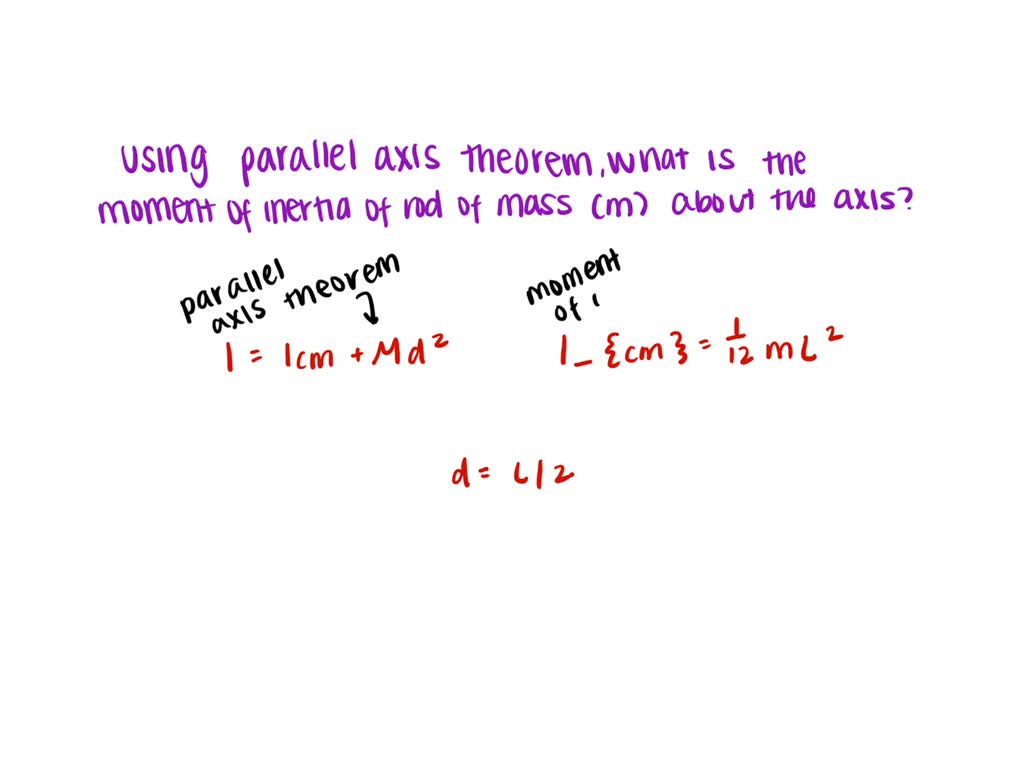 using parallel axis theorem, what is the
moment of inertia of rod of mass (m) about the axis?
parallel
axis theorem
moment
of i
I = Icm + Md²
I_{cm} = 1/12 mL²
d = L/2